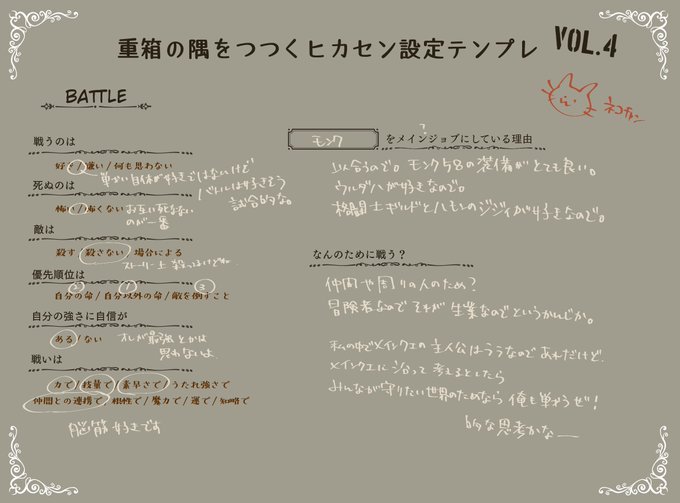 重箱の隅をつつくヒカセン設定テンプレ VOL.4
ネコチャン
BATTLE
戦うのは
好き/嫌い/何も思わない
戦い自体が好きではないけど
バトルは好きそう
試合的な。
死ぬのは
怖い/怖くない
お互い死なない
のが一番
敵は
殺す/殺さない/場合による
ストーリー上 殺ってるけどね
優先順位は
2 1 3
自分の命/自分以外の命/敵を倒すこと
自分の強さに自信が
ある/ない
オレが最強とかは
思わないよ
戦いは
力で/技量で/素早さで/うたれ強さで
仲間との連携で/根性で/魔力で/運で/知略で
脳筋好きです
モンク をメインジョブにしている理由
?
似合うので。モンク58の装備がとても良い。
ウルダハが好きなので。
格闘士ギルドとハモンのジジイが好きなので。
なんのために戦う?
仲間や周りの人のため?
冒険者なのでそれが生業なのでというかんじか。
私の中でメインクエの主人公はララなのであれだけど、
メインクエに沿って考えるとしたら
みんなが守りたい世界のためなら俺も戦うぜ!
的な思考かなー